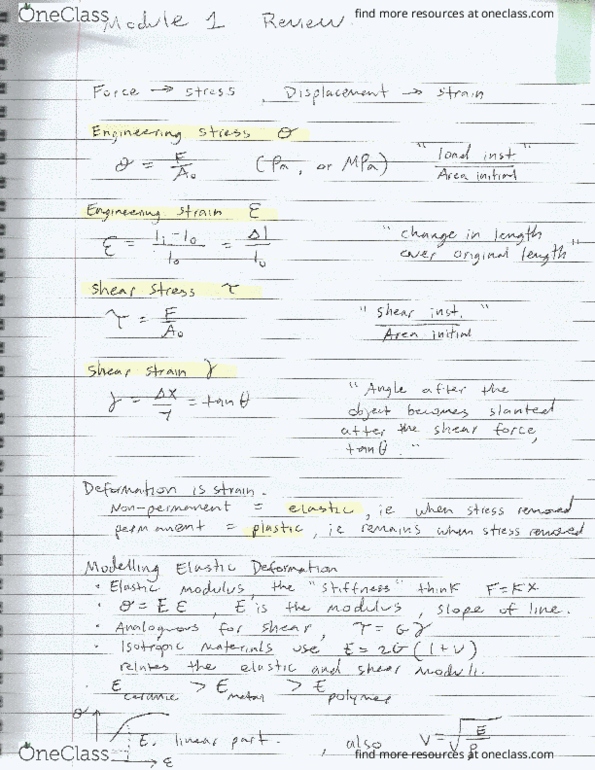 OneClass find more resources at oneclass.com
Module 1 Review
Force → stress , Displacement → strain
Engineering stress σ
σ = F/A₀ (Pa, or MPa) "load inst / Area initial"
Engineering strain ε
ε = (lᵢ - l₀)/l₀ = Δl/l₀ "change in length
over original length"
Shear stress τ
τ = F/A₀ "shear inst." / Area initial
Shear strain γ
γ = Δx/γ = tanθ "Angle after the
object becomes slanted
after the shear force,
tanθ."
Deformation is strain.
Non-permanent = elastic, ie when stress removed
permanent = plastic, ie remains when stress removed
Modelling Elastic Deformation
• Elastic modulus, the "stiffness" think F=kx
• σ = E ε, E is the modulus, slope of line.
• Analogous for shear, τ = Gγ
• Isotropic materials use E = 2G(1+ν)
relates the elastic and shear moduli.
• E ceramic > E metal > E polymer
σ E. linear part. , also V = √(E/ρ)
ε
OneClass find more resources at oneclass.com